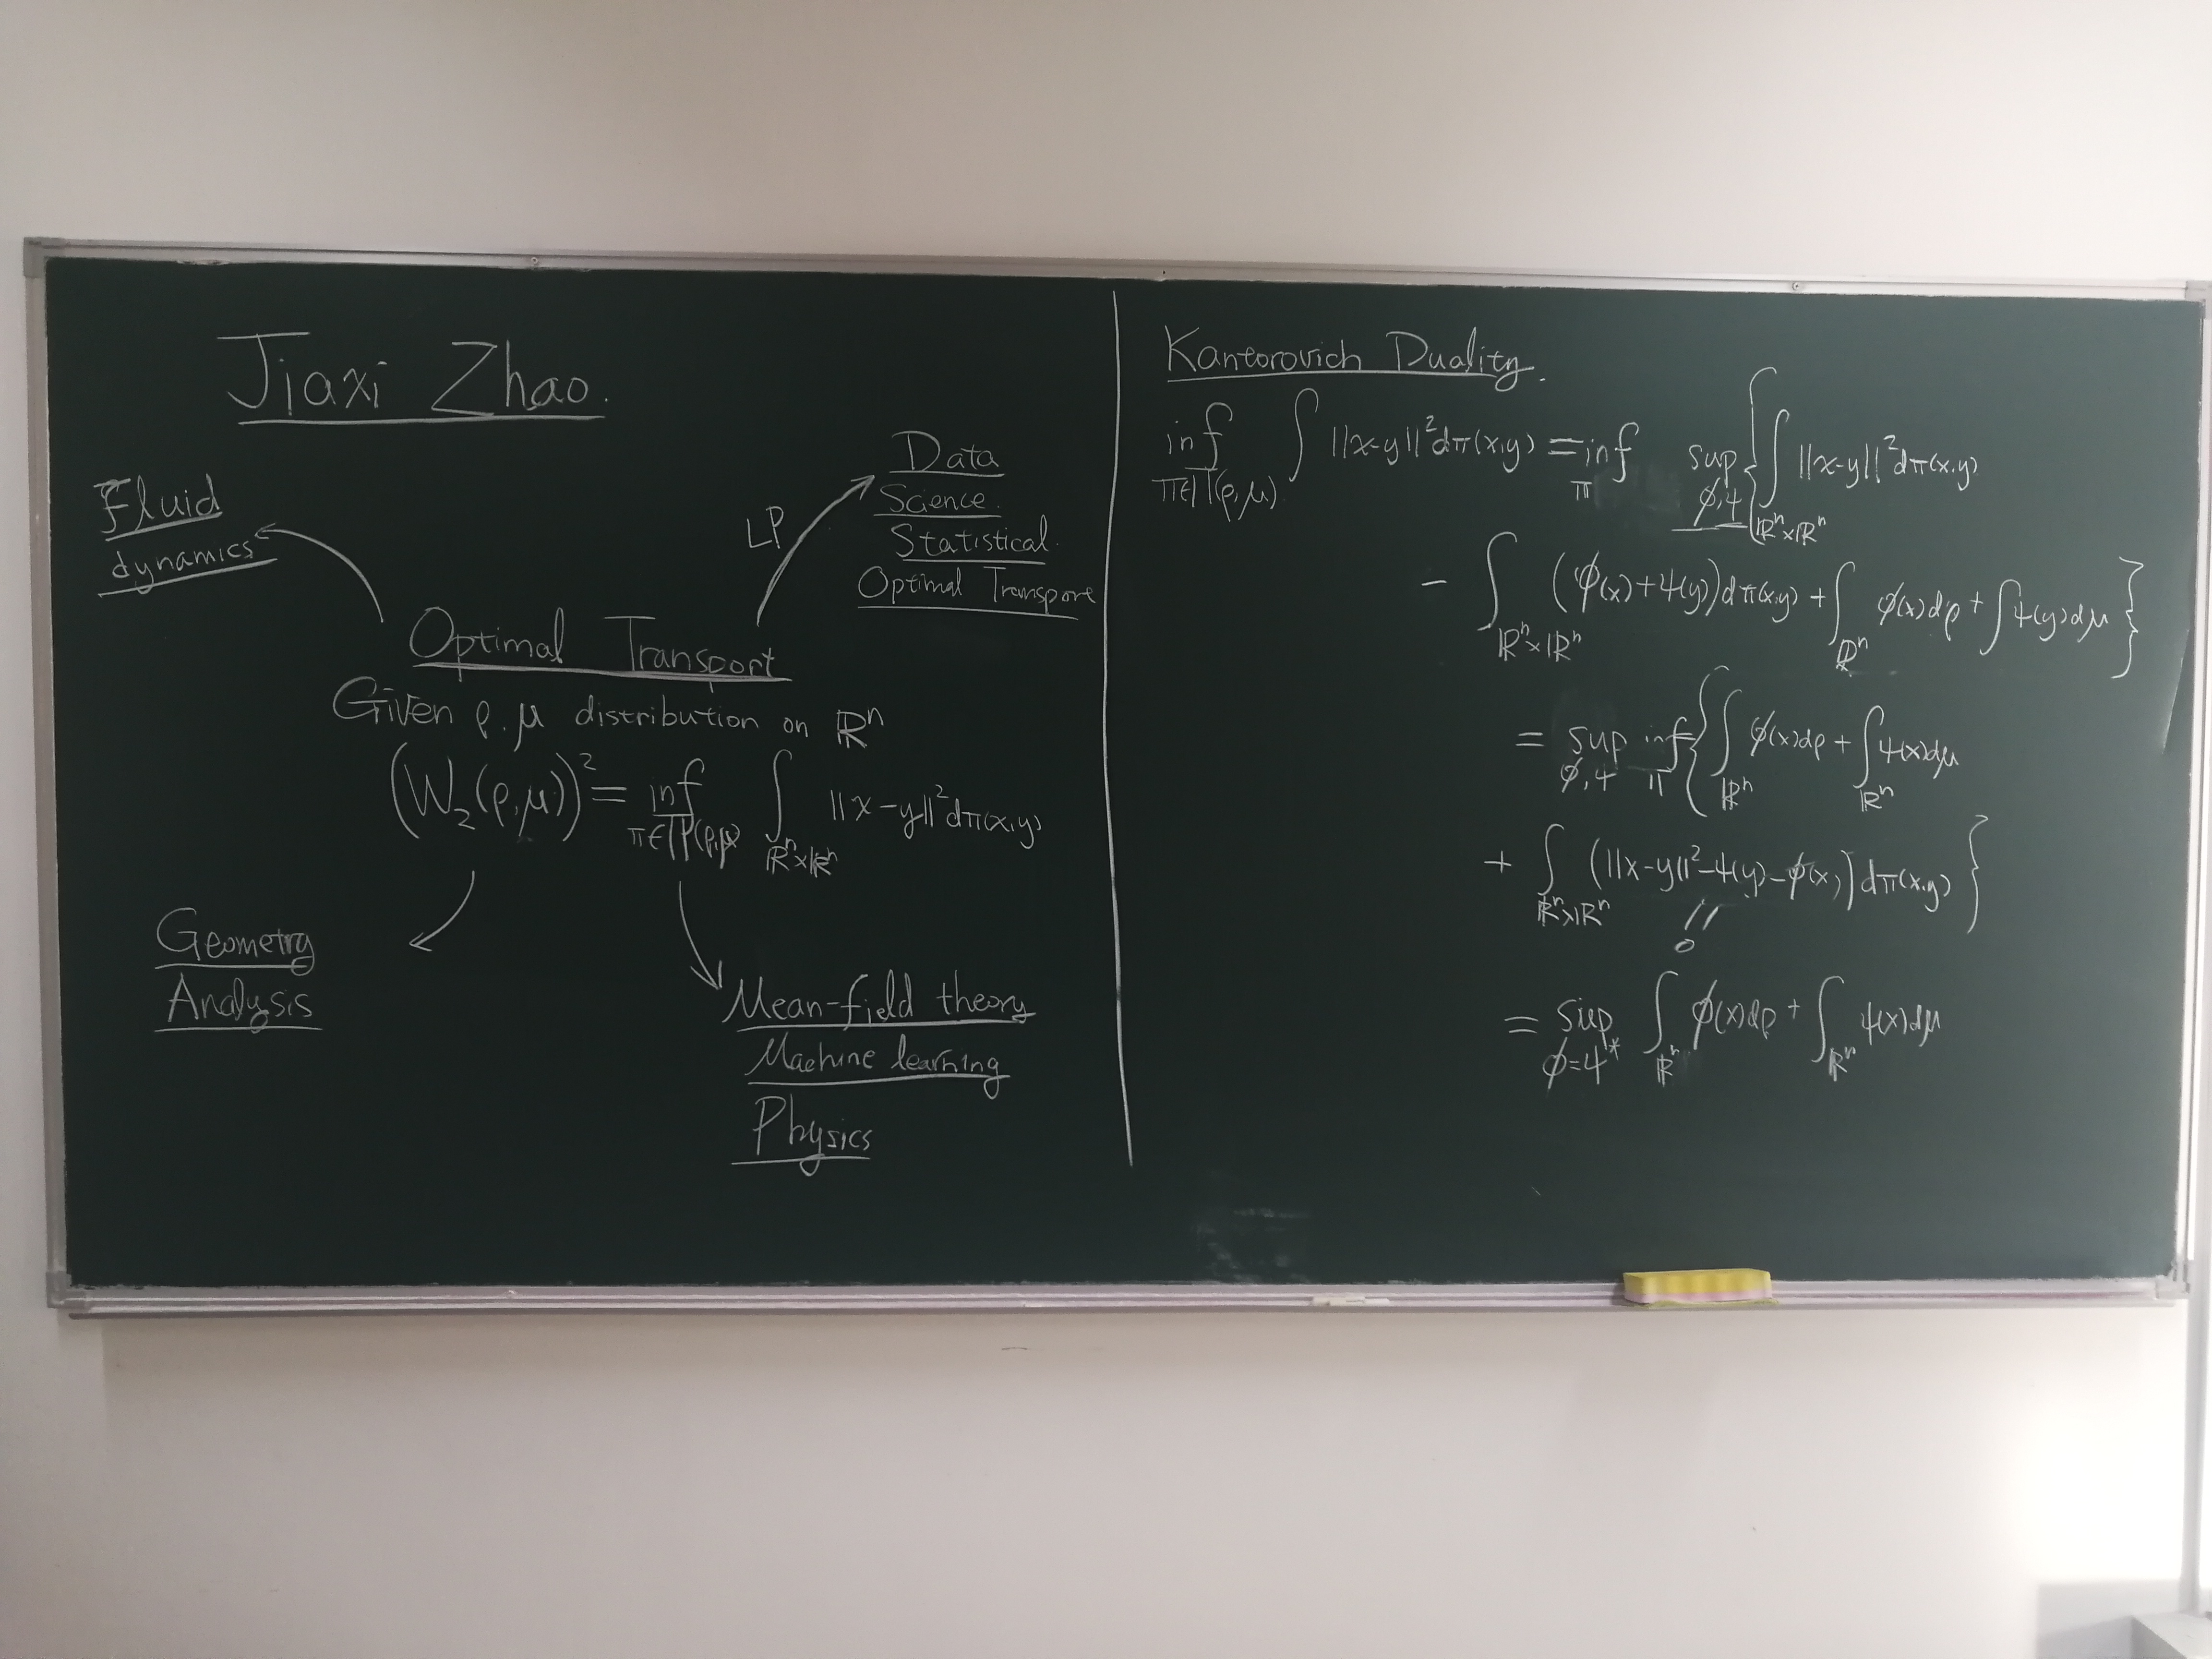 Jiaxi Zhao.
Fluid
dynamics
LP
Data
Science.
Statistical
Optimal Transport
Optimal Transport
Given ρ, μ distribution on ℝⁿ
(W₂(ρ,μ))² = inf_{π∈Π(ρ,μ)} ∫_{ℝⁿ×ℝⁿ} ||x-y||² dπ(x,y)
Geometry
Analysis
Mean-field theory
Machine learning
Physics
Kantorovich Duality.
inf_{π∈Π(ρ,μ)} ∫ ||x-y||² dπ(x,y) = inf_π sup_{φ,ψ} { ∫_{ℝⁿ×ℝⁿ} ||x-y||² dπ(x,y)
- ∫_{ℝⁿ×ℝⁿ} (φ(x)+ψ(y)) dπ(x,y) + ∫_{ℝⁿ} φ(x)dρ + ∫ψ(y)dμ }
= sup_{φ,ψ} inf_π { ∫_{ℝⁿ} φ(x)dρ + ∫_{ℝⁿ} ψ(x)dμ
+ ∫_{ℝⁿ×ℝⁿ} (||x-y||²-ψ(y)-φ(x)) dπ(x,y) }
= sup_{φ=ψ*} ∫_{ℝⁿ} φ(x)dρ + ∫_{ℝⁿ} ψ(x)dμ